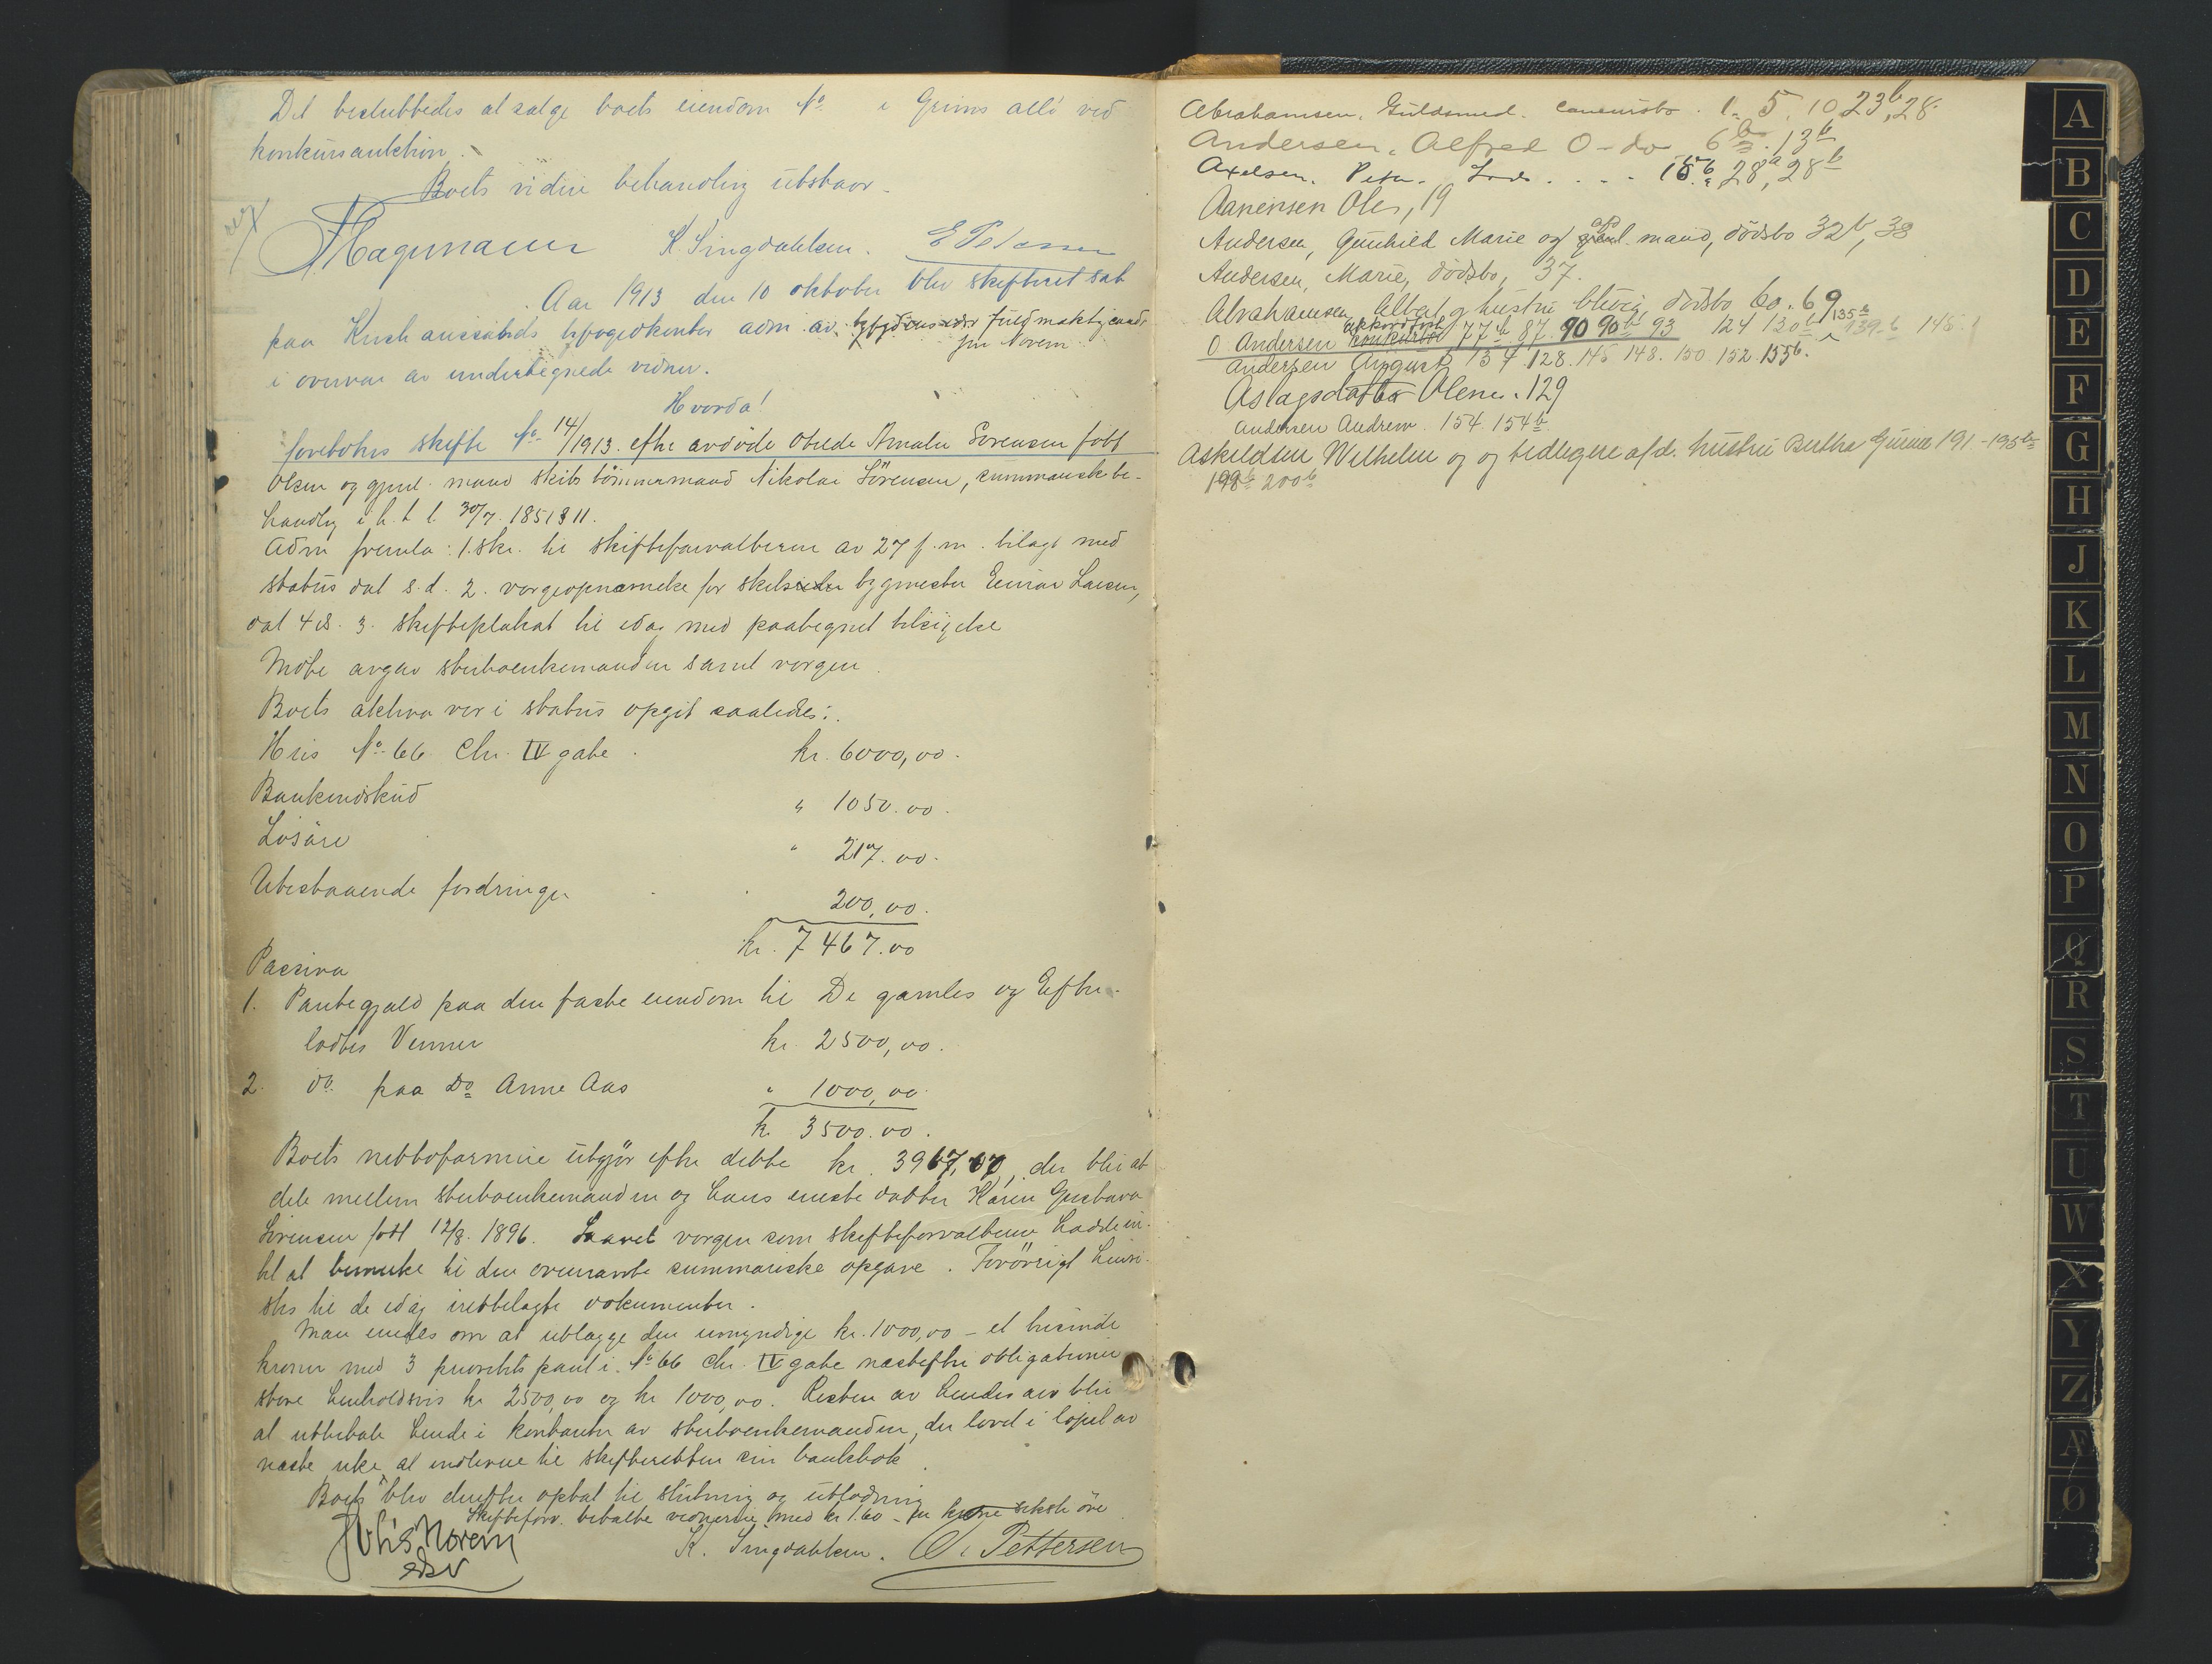 Det besluttedes at sælge boets eiendom No i Grims allé ved
konkursauktion.
Boets videre behandling utstaar.
K. Singdahlsen. E Petersen
Aar 1913 den 10 oktober blev skifteret sat
paa Kristianssands byfogedkontor adm. av fuldmægtig cand.
jur Norem
i overvær av undertegnede vidner.
Hvorda!
foretokes skifte No 14/1913 efter avdøde Otilde Amalie Sørensen født
Olsen og gjenl. mand skibstømmermand Nikolai Sørensen, summarisk be-
handling i h. t. l. 30/7 1851 § 11.
Adm fremla: 1. skr. til skifteforvalteren av 27 f. m. bilagt med
status dat s. d. 2. vergeopnævnelse for bygmester Einar Larsen,
dat 4 ds. 3. skifteplakat til idag med paategnet tilsigelse
Møte avgav sterboenkemanden samt vergen.
Boets aktiva var i status opgit saaledes:
Hus No 66 Chr. IV gate kr. 6000,00.
Bankindskud " 1050.00.
Løsøre " 217.00.
Utestaaende fordringer 200,00.
kr. 7467.00
Passiva
1. Pantegjæld paa den faste eiendom til De gamles og Efter-
ladtes Venner kr. 2500,00.
2. do. paa Do Anne Aas " 1000,00.
kr. 3500.00.
Boets nettoformue utgjør efter dette kr. 3967,00, der blir at
dele mellem sterboenkemanden og hans eneste datter Karin Gustava
Sørensen født 12/8. 1896. Saavel vergen som skifteforvalteren hadde in-
tet at bemerke til den ovennævnte summariske opgave. Forøvrigt henvi-
stes til de idag irettelagte dokumenter.
Man enedes om at utlægge den umyndige kr. 1000,00 - et tusinde
kroner med 3 prioritets pant i No 66 Chr. IV gate næstefter obligationer
store henholdsvis kr 2500,00 og kr 1000,00. Resten av hendes arv blir
at utbetale hende i kontanter av sterboenkemanden, der lovet i løpet av
næste uke at indlevere til skifteretten sin bankbok.
Boet blev derefter optat til slutning og utlodning
Skifteforv. betalte vidnerne med kr 1.60 - en krone seksti øre
Norem
K. Singdahlsen. O. Pettersen
Abrahamsen, Guldsmed. 1. 5. 10, 23b, 28.
Andersen, Alfred O - do 6b. 13b
Axelsen, Peter. 15b, 28a, 28b
Aanensen Oles, 19
Andersen, Gunhild Marie og gjenl. mand, dødsbo 32b, 38
Andersen, Marie, dødsbo, 37.
Abrahamsen, Albert og hustru dødsbo 60. 69
135b
O. Andersen konkursbo 77b 87. 90 90b 93 124 130b 139b 145.
Andersen August 134. 128. 145 148. 150. 152. 155b.
Aslagsdatter Olene. 129
Andersen Andrew. 154 154b
Askildsen Wilhelm og og tidligere afd. hustru Bertha Gurine 191 - 195b
198b 200b
A
B
C
D
E
F
G
H
J
K
L
M
N
O
P
Q
R
S
T
U
W
X
Y
Z
Æ
Ø